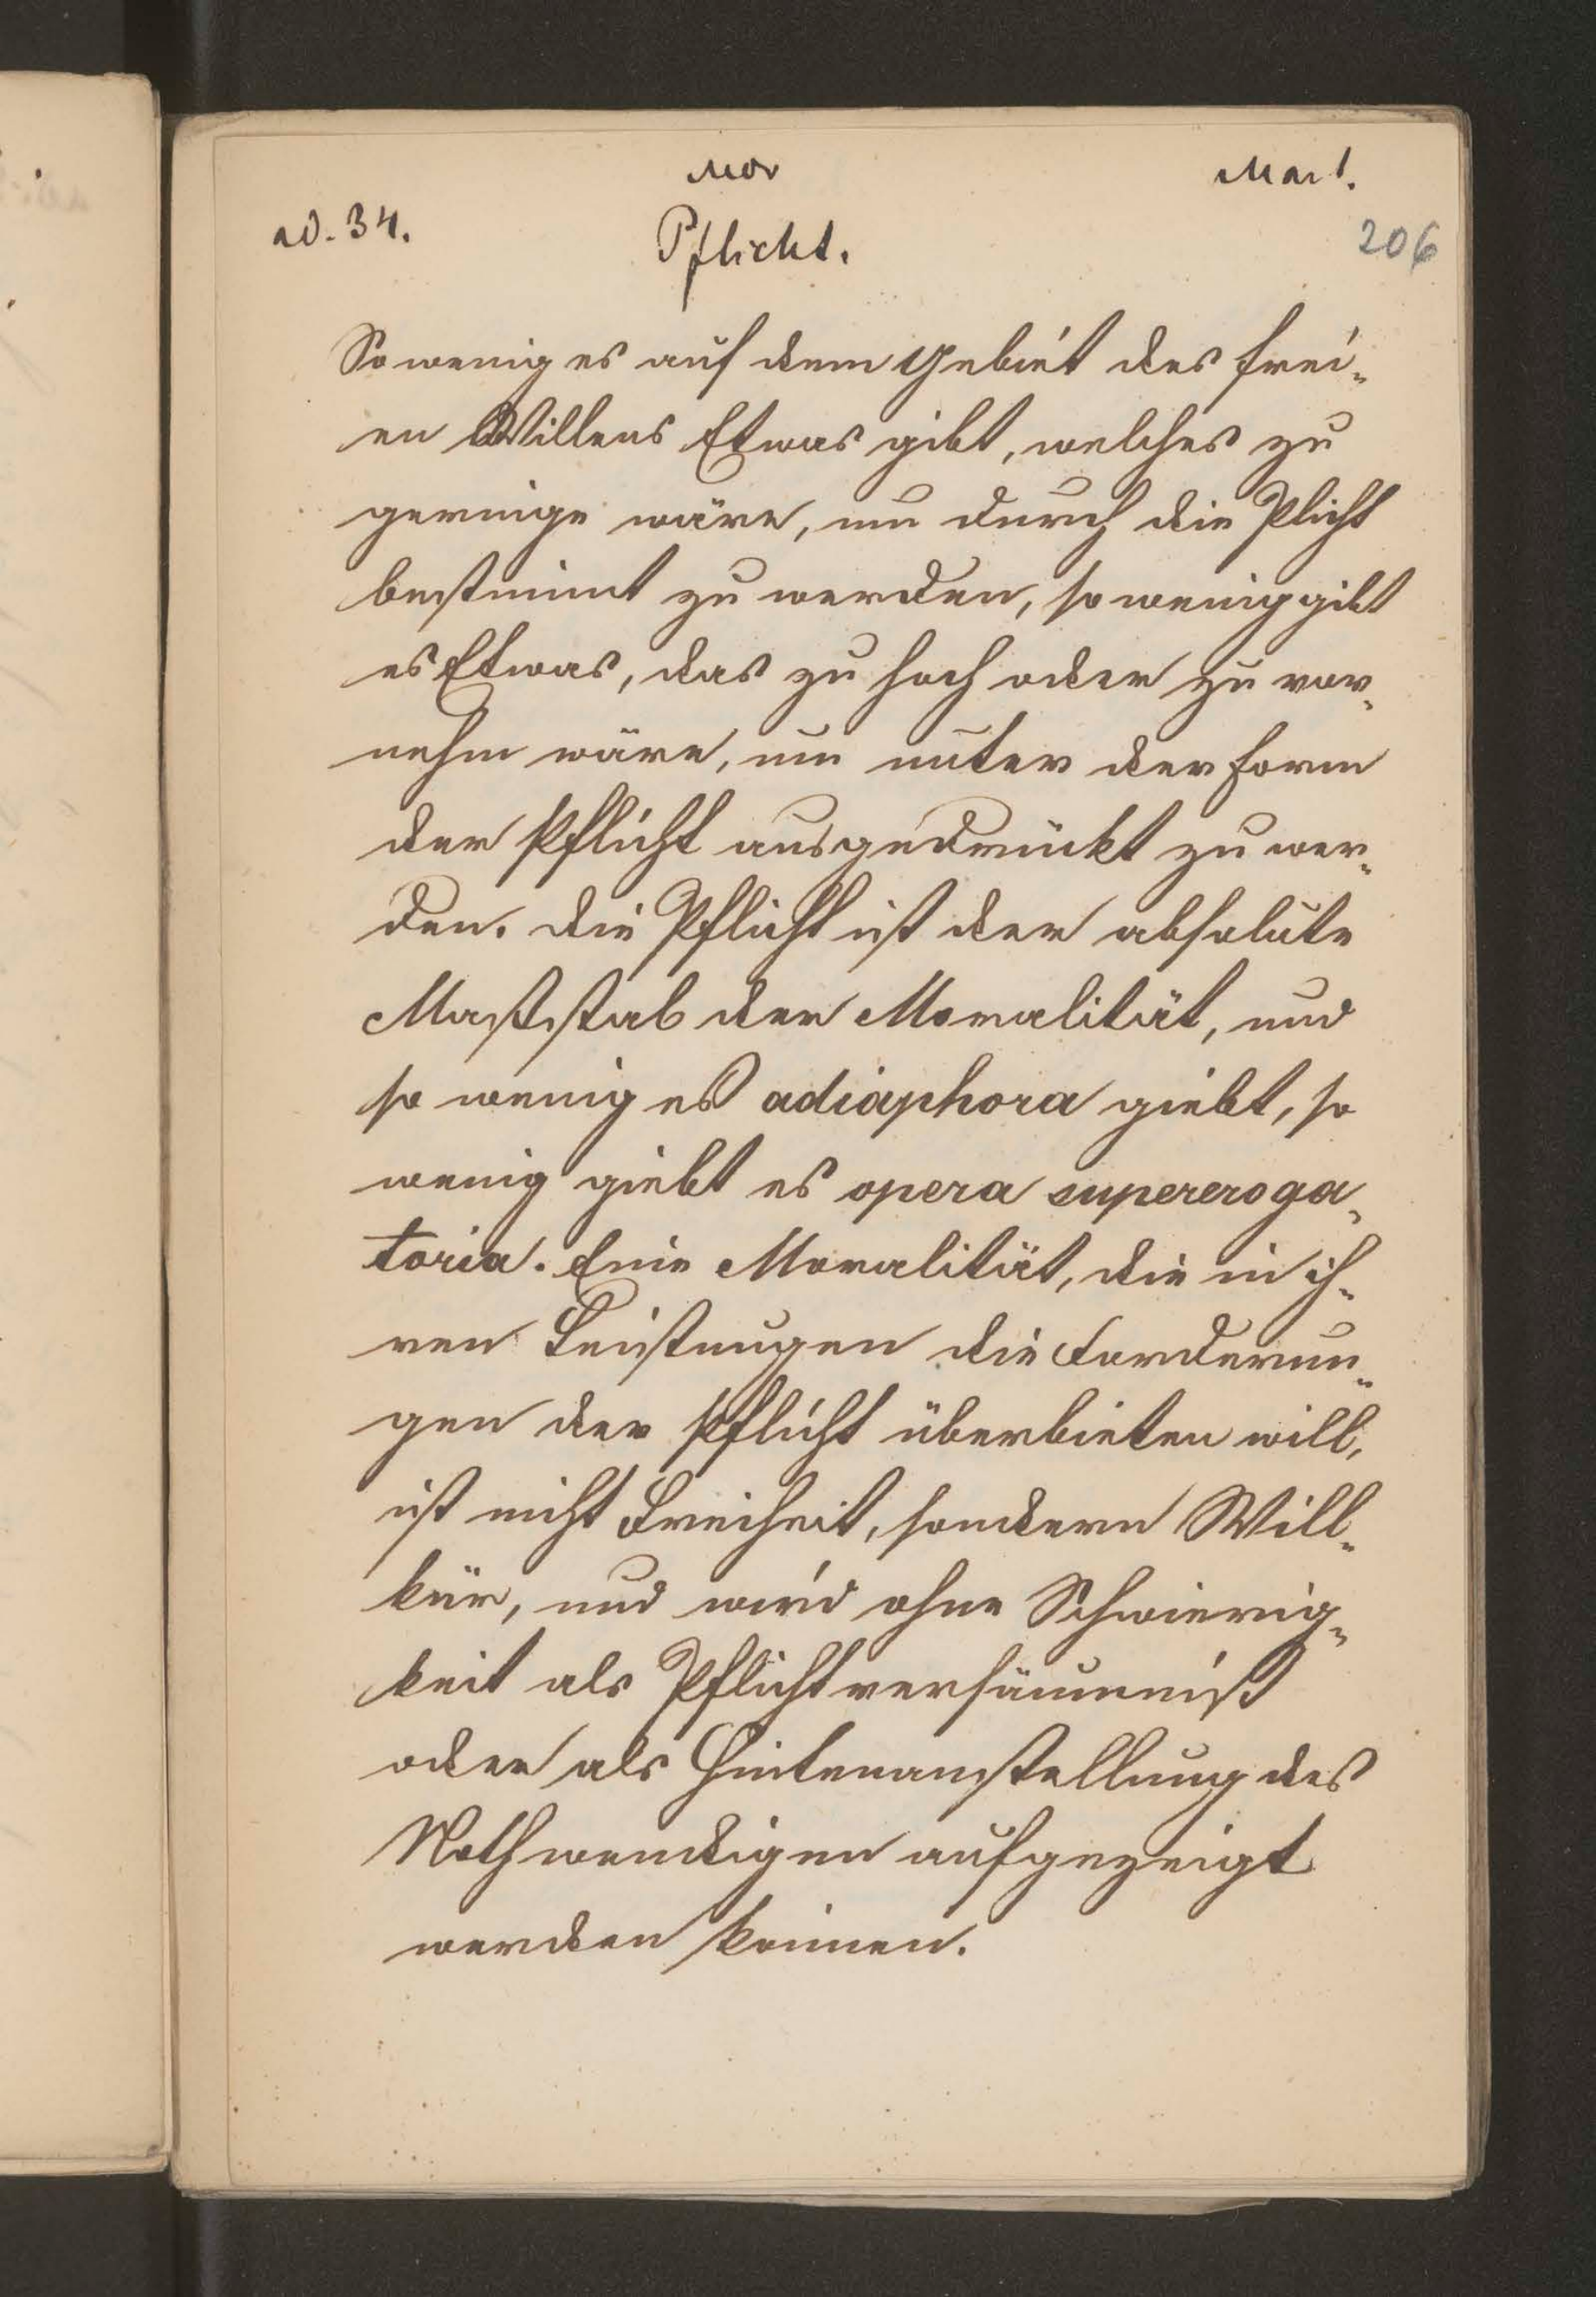 Mor
Mart.
ad. 34.
Pflicht.
206
So wenig es auf dem Gebiet des frei-
en Willens Etwas gibt, welches zu
geringe wäre, um durch die Plicht
bestimmt zu werden, so wenig gibt
es Etwas, das zu hoch oder zu vor-
nehm wäre, um unter der Form
der Pflicht ausgedrückt zu wer-
den. Die Pflicht ist der absolute
Maßstab der Moralität, und
so wenig es adiaphora giebt, so
wenig giebt es opera supereroga-
toria. Eine Moralität, die in ih-
ren Leistungen die Forderun-
gen der Pflicht überbieten will,
ist nicht Freiheit, sondern Will-
kür, und wird ohne Schwierig-
keit als Pflichtversäumniß
oder als Hintenanstellung des
Nothwendigen aufgezeigt
werden können.